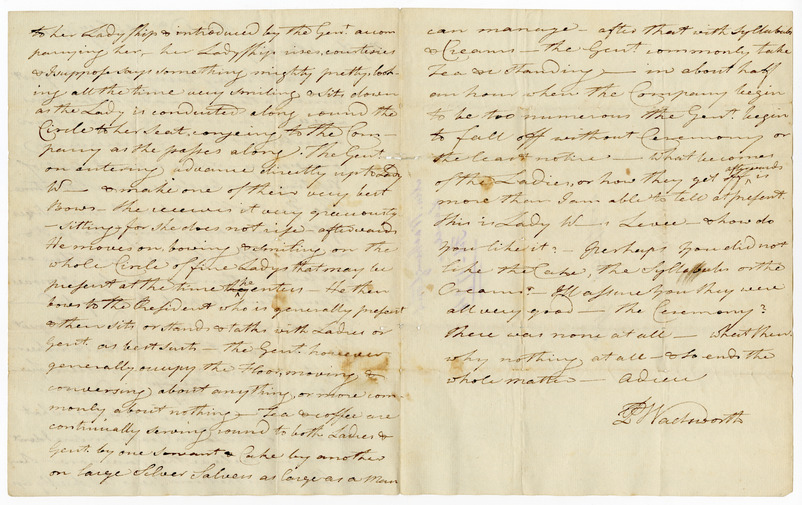 to her Ladyship & introduced by the Gent. accom
panying her, her Ladyship rises, courtesies
& I suppose says something mighty pretty, look-
ing all the time very smiling & sits down
as the Lady is conducted along round the
Circle to her Seat, congeing to the Com-
pany as she passes along. The Gent.
on entering advance directly up to Lady
W— & make one of their very best
Bows — She receives it very graciously
— sitting, for she does not rise — afterwards
He moves on, bowing & smiling on the
whole Circle of fine Ladys that may be
present at the time he enters — He then
bows to the President who is generally present
& then sits or stands & talks with Ladies or
Gent. as best suits — the Gent. however
generally occupy the Floor, moving &
conversing about anything, or more com-
monly about nothing — Tea & coffee are
continually serving round to both Ladies &
Gent. by one Servant & Cake by another
on large Silver Salvers as large as a Man
can manage — after that with Syllabubs
& Creams — the Gent. commonly take
Tea &c standing — in about half
an hour when the Company begin
to be too numerous the Gent. begin
to fall off without Ceremony or
the least notice — What becomes
of the Ladies, or how they get off afterwards is
more than I am able to tell at present.
this is Lady W—s Levee — & how do
you like it? — perhaps you did not
like the Cake, the Syllabubs or the
Creams? — I'll assure you they were
all very good — the Ceremony?
there was none at all — what then
why nothing at all — & so ends the
whole matter — adieu
P Wadsworth